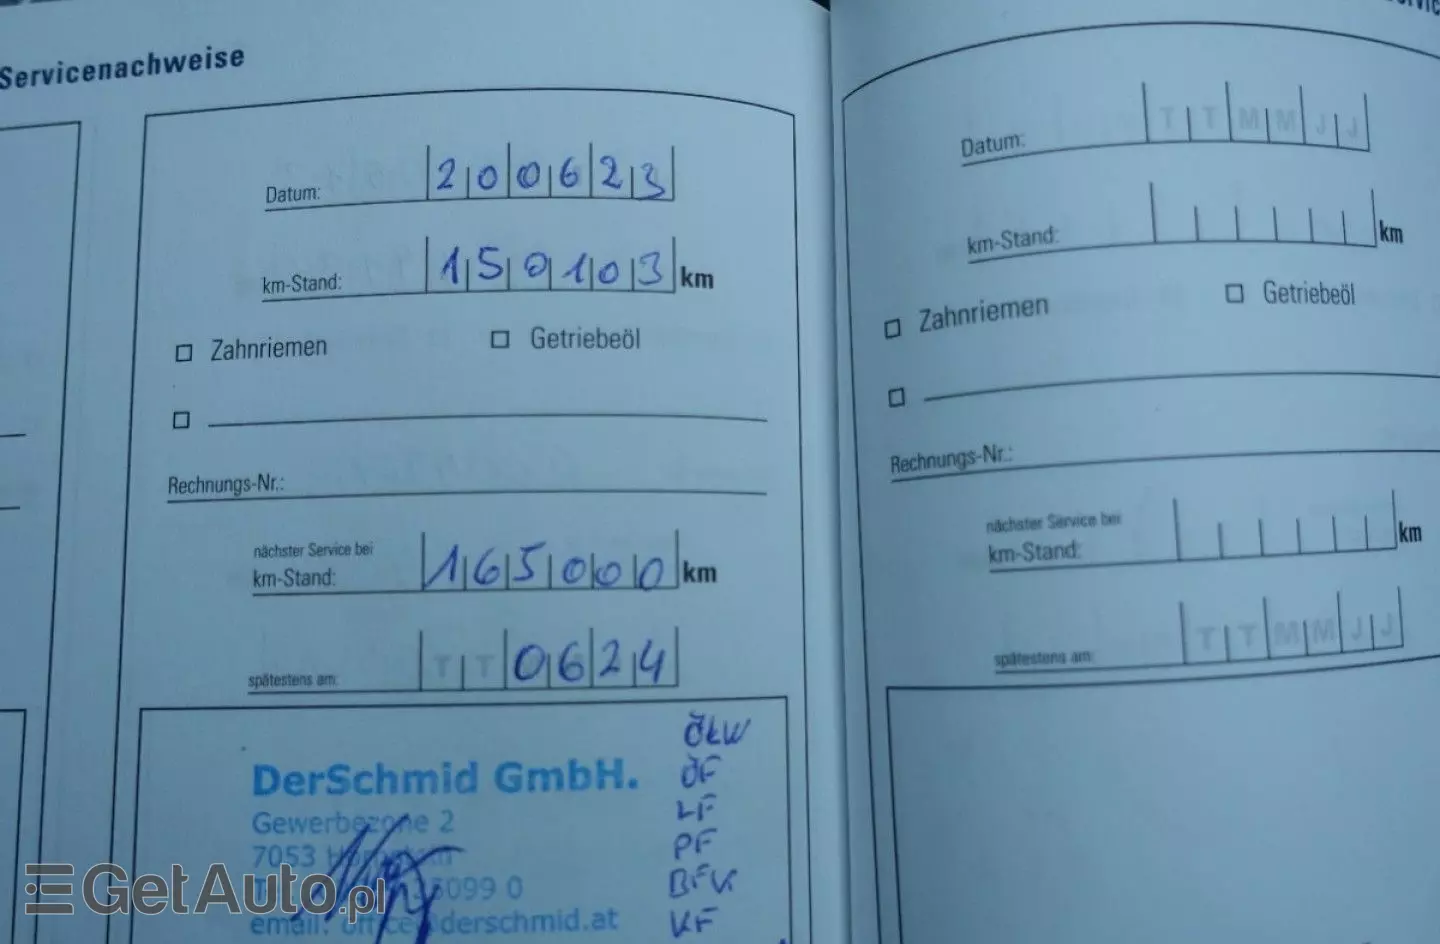 Servicenachweise
Datum: 200623
km-Stand: 150103 km
Zahnriemen Getriebeöl
Rechnungs-Nr.:
nächster Service bei
km-Stand: 165000 km
spätestens am: TT0624
DerSchmid GmbH.
Gewerbezone 2
7053
5099 0
email: office@derschmid.at
ÖLW
ÖF
LF
PF
BFK
KF
Datum: TTMMJJ
km-Stand: km
Zahnriemen Getriebeöl
Rechnungs-Nr.:
nächster Service bei
km-Stand: km
spätestens am: TTMMJJ
GetAuto.pl